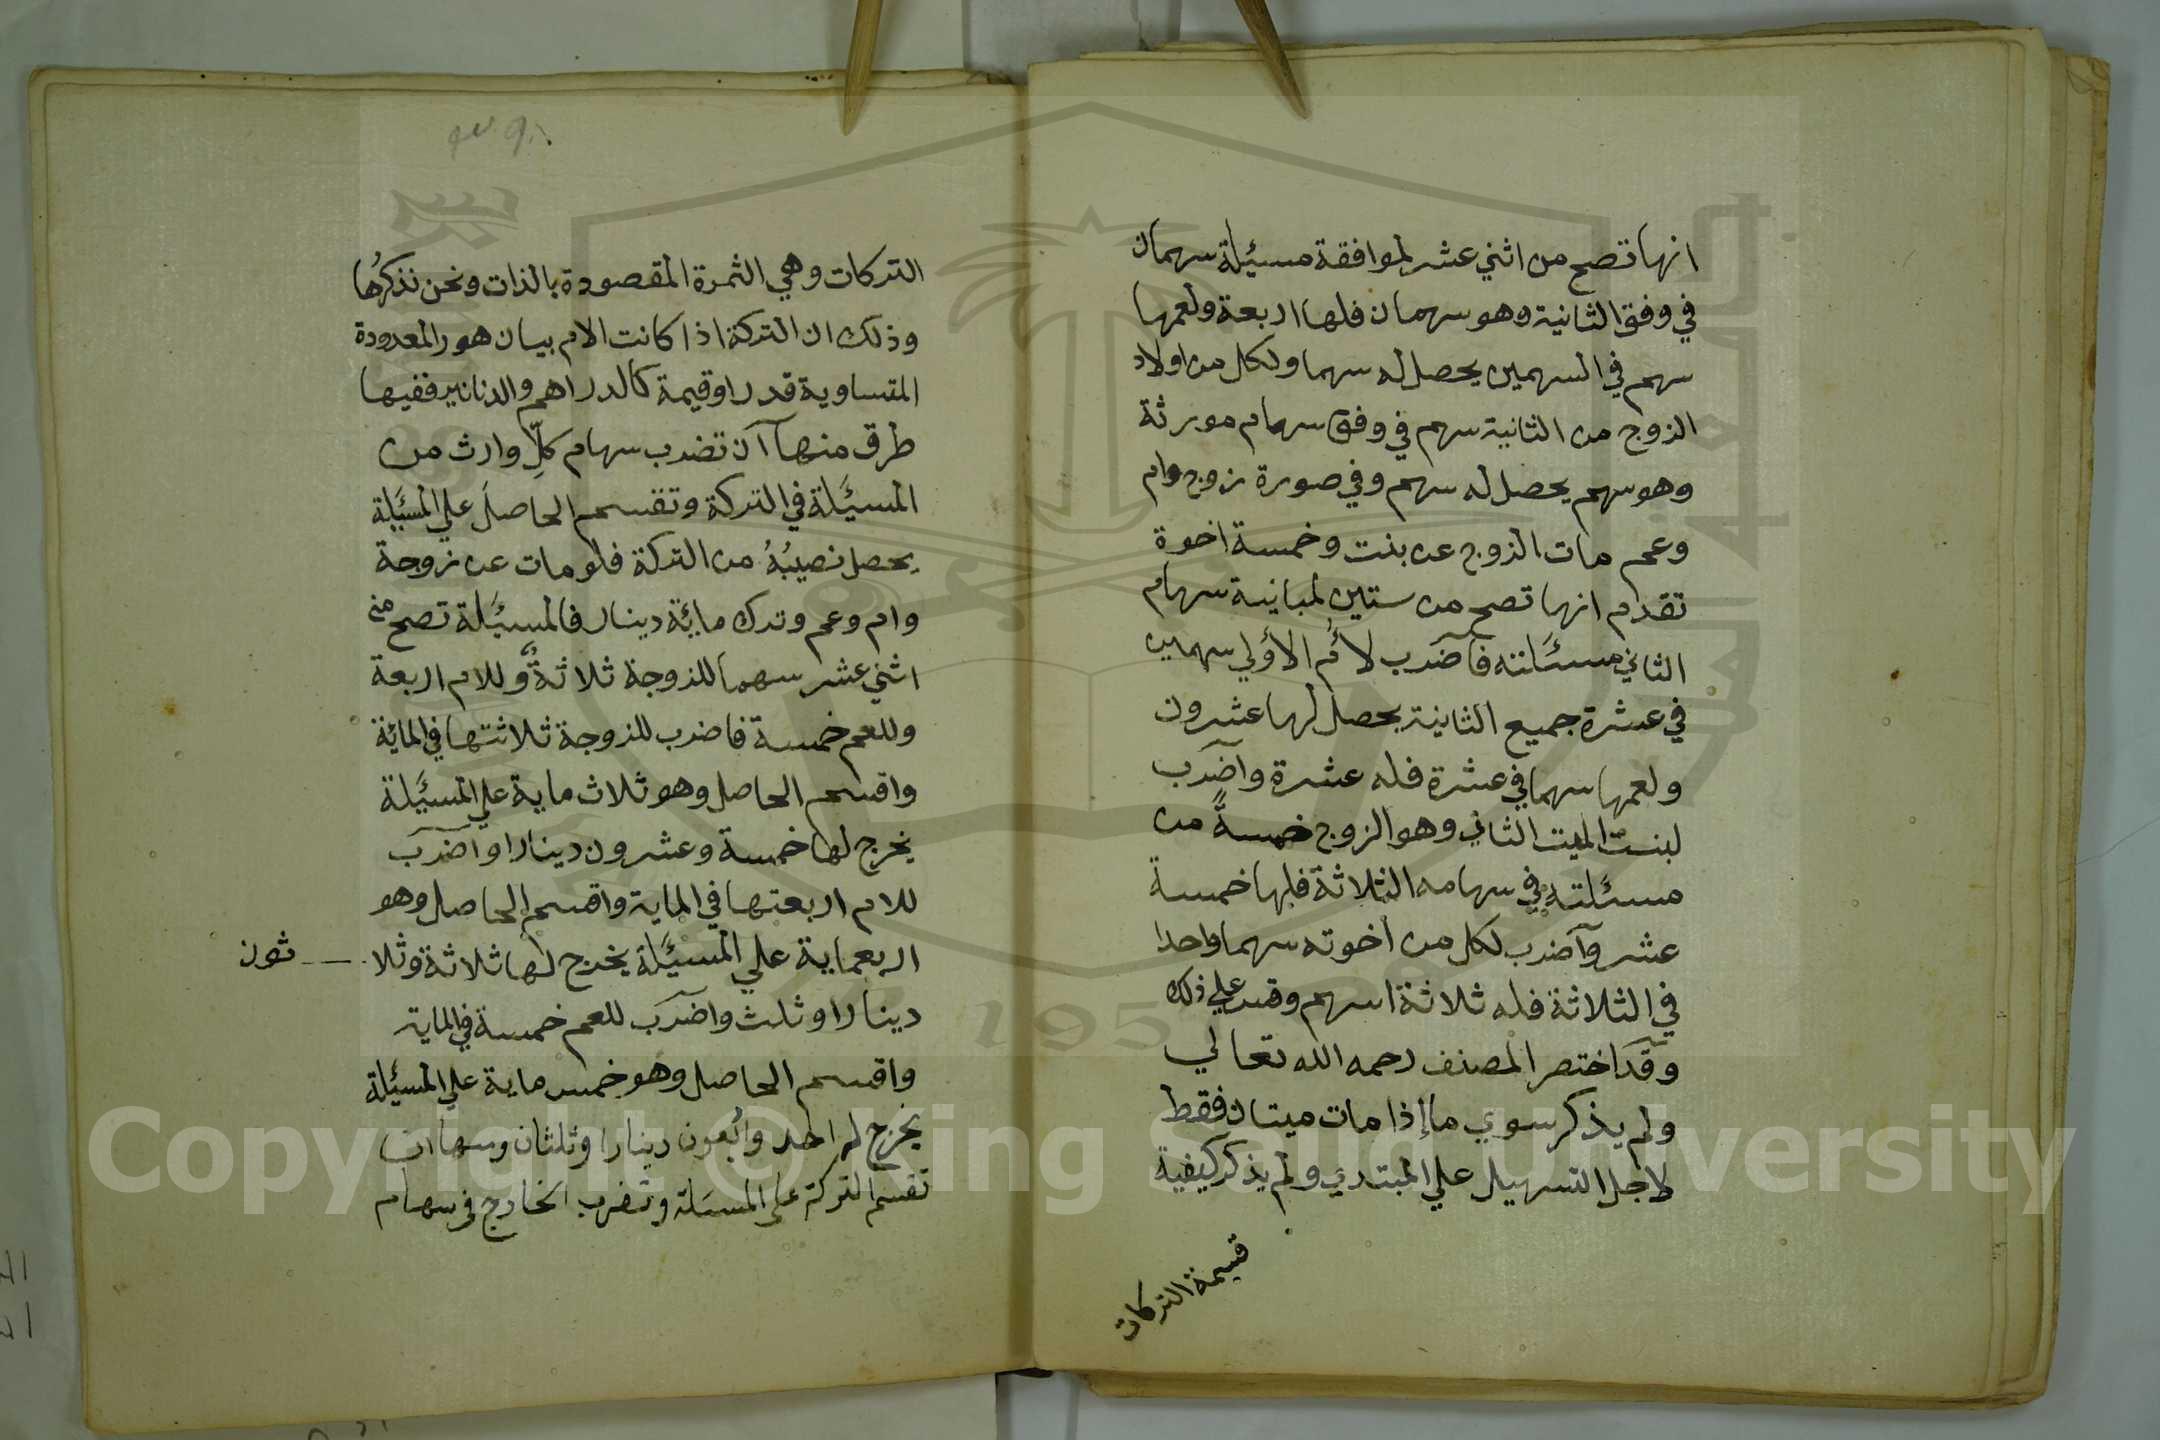 انها تصح من اثني عشر لموافقة مسئيلة سهمان
في وفق الثانية وهو سهمان فلها اربعة ولعمها
سهم في السهمين يحصل له سهما ولكل من اولاد
الزوج من الثانية سهم في وفق سهام مورثة
وهو سهم يحصل له سهم وفي صورة زوج وام
وعم مات الزوج عن بنت وخمسة اخوة
تقدم انها تصح من ستين لمباينة سهام
الثاني مسئلته فاضرب لأم الأولي سهمين
في عشرة جميع الثانية يحصل لها عشرون
ولعمها سهما في عشرة فله عشرة واضرب
لبنت الميت الثاني وهو الزوج خمسة من
مسئلته في سهامه الثلاثة فلها خمسة
عشر واضرب لكل من أخوته سهما واحدا
في الثلاثة فله ثلاثة اسهم وقس علي ذلك
وقد اختصر المصنف رحمه الله تعالي
ولم يذكر سوي ما إذا مات ميتان فقط
لاجل التسهيل علي المبتدي ولم يذكر كيفية
قسمة التركات
التركات وهي الثمرة المقصودة بالذات ونحن نذكرُها
وذلك ان التركة اذا كانت الام بيان هور المعدودة
المتساوية قدرا وقيمة كالدراهم والدنانير ففيها
طرق منها آن تضرب سهام كلِّ وارث من
المسئيلة في التركة وتقسم الحاصلَ علي المسئيلة
يحصل نصيبُهُ من التركة فلو مات عن زوجة
وام وعم وترك مائة دينار فالمسئيلة تصح من
اثني عشر سهما للزوجة ثلاثةٌ وللام اربعة
وللعم خمسة فاضرب للزوجة ثلاثتها في المائة
واقسم الحاصل وهو ثلاث ماية علي المسئيلة
يخرج لها خمسة وعشرون دينارا واضرب
للام اربعتها في الماية واقسم الحاصل وهو
اربعماية علي المسئيلة يخرج لها ثلاثة وثلا ثون
دينارا وثلث واضرب للعم خمسة في الماية
واقسم الحاصل وهو خمس ماية علي المسئيلة
يخرج له احد وأبعون دينارا وثلثان ومنها ان
تقسم التركة على المسئلة وتضرب الخارج في سهام
Copyright © King Saud University
195